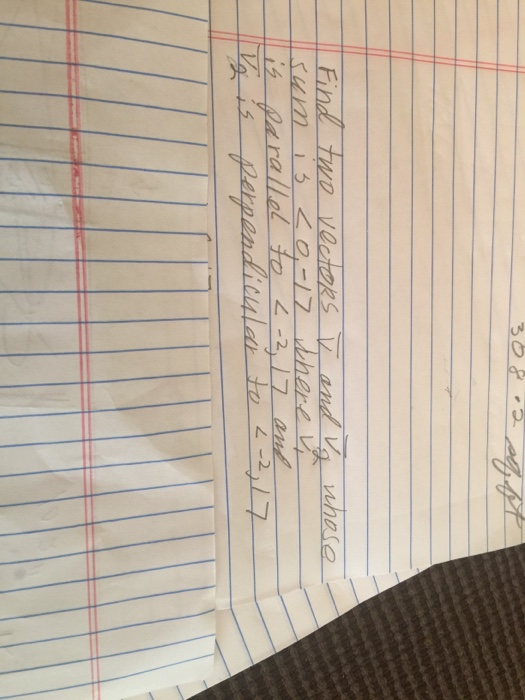 Find two vectors v̄ and v̄₂ whose
sum is <0,-1> where v̄₁
is parallel to <-2,1> and
v̄₂ is perpendicular to <-2,1>